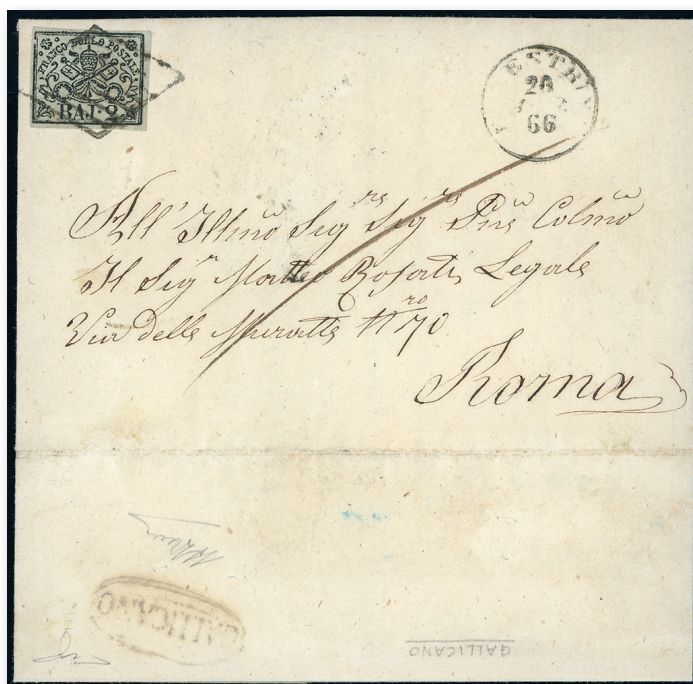 FRANCO BOLLO POSTALE
BAJ. 2
ESTRIN
20
66
All' Illmo Sigre Sigre Pne Colmo
Il Sigr Matteo Rosati Legale
Via delle Muratte Nro 70
Roma
GALLICANO
GALLICANO